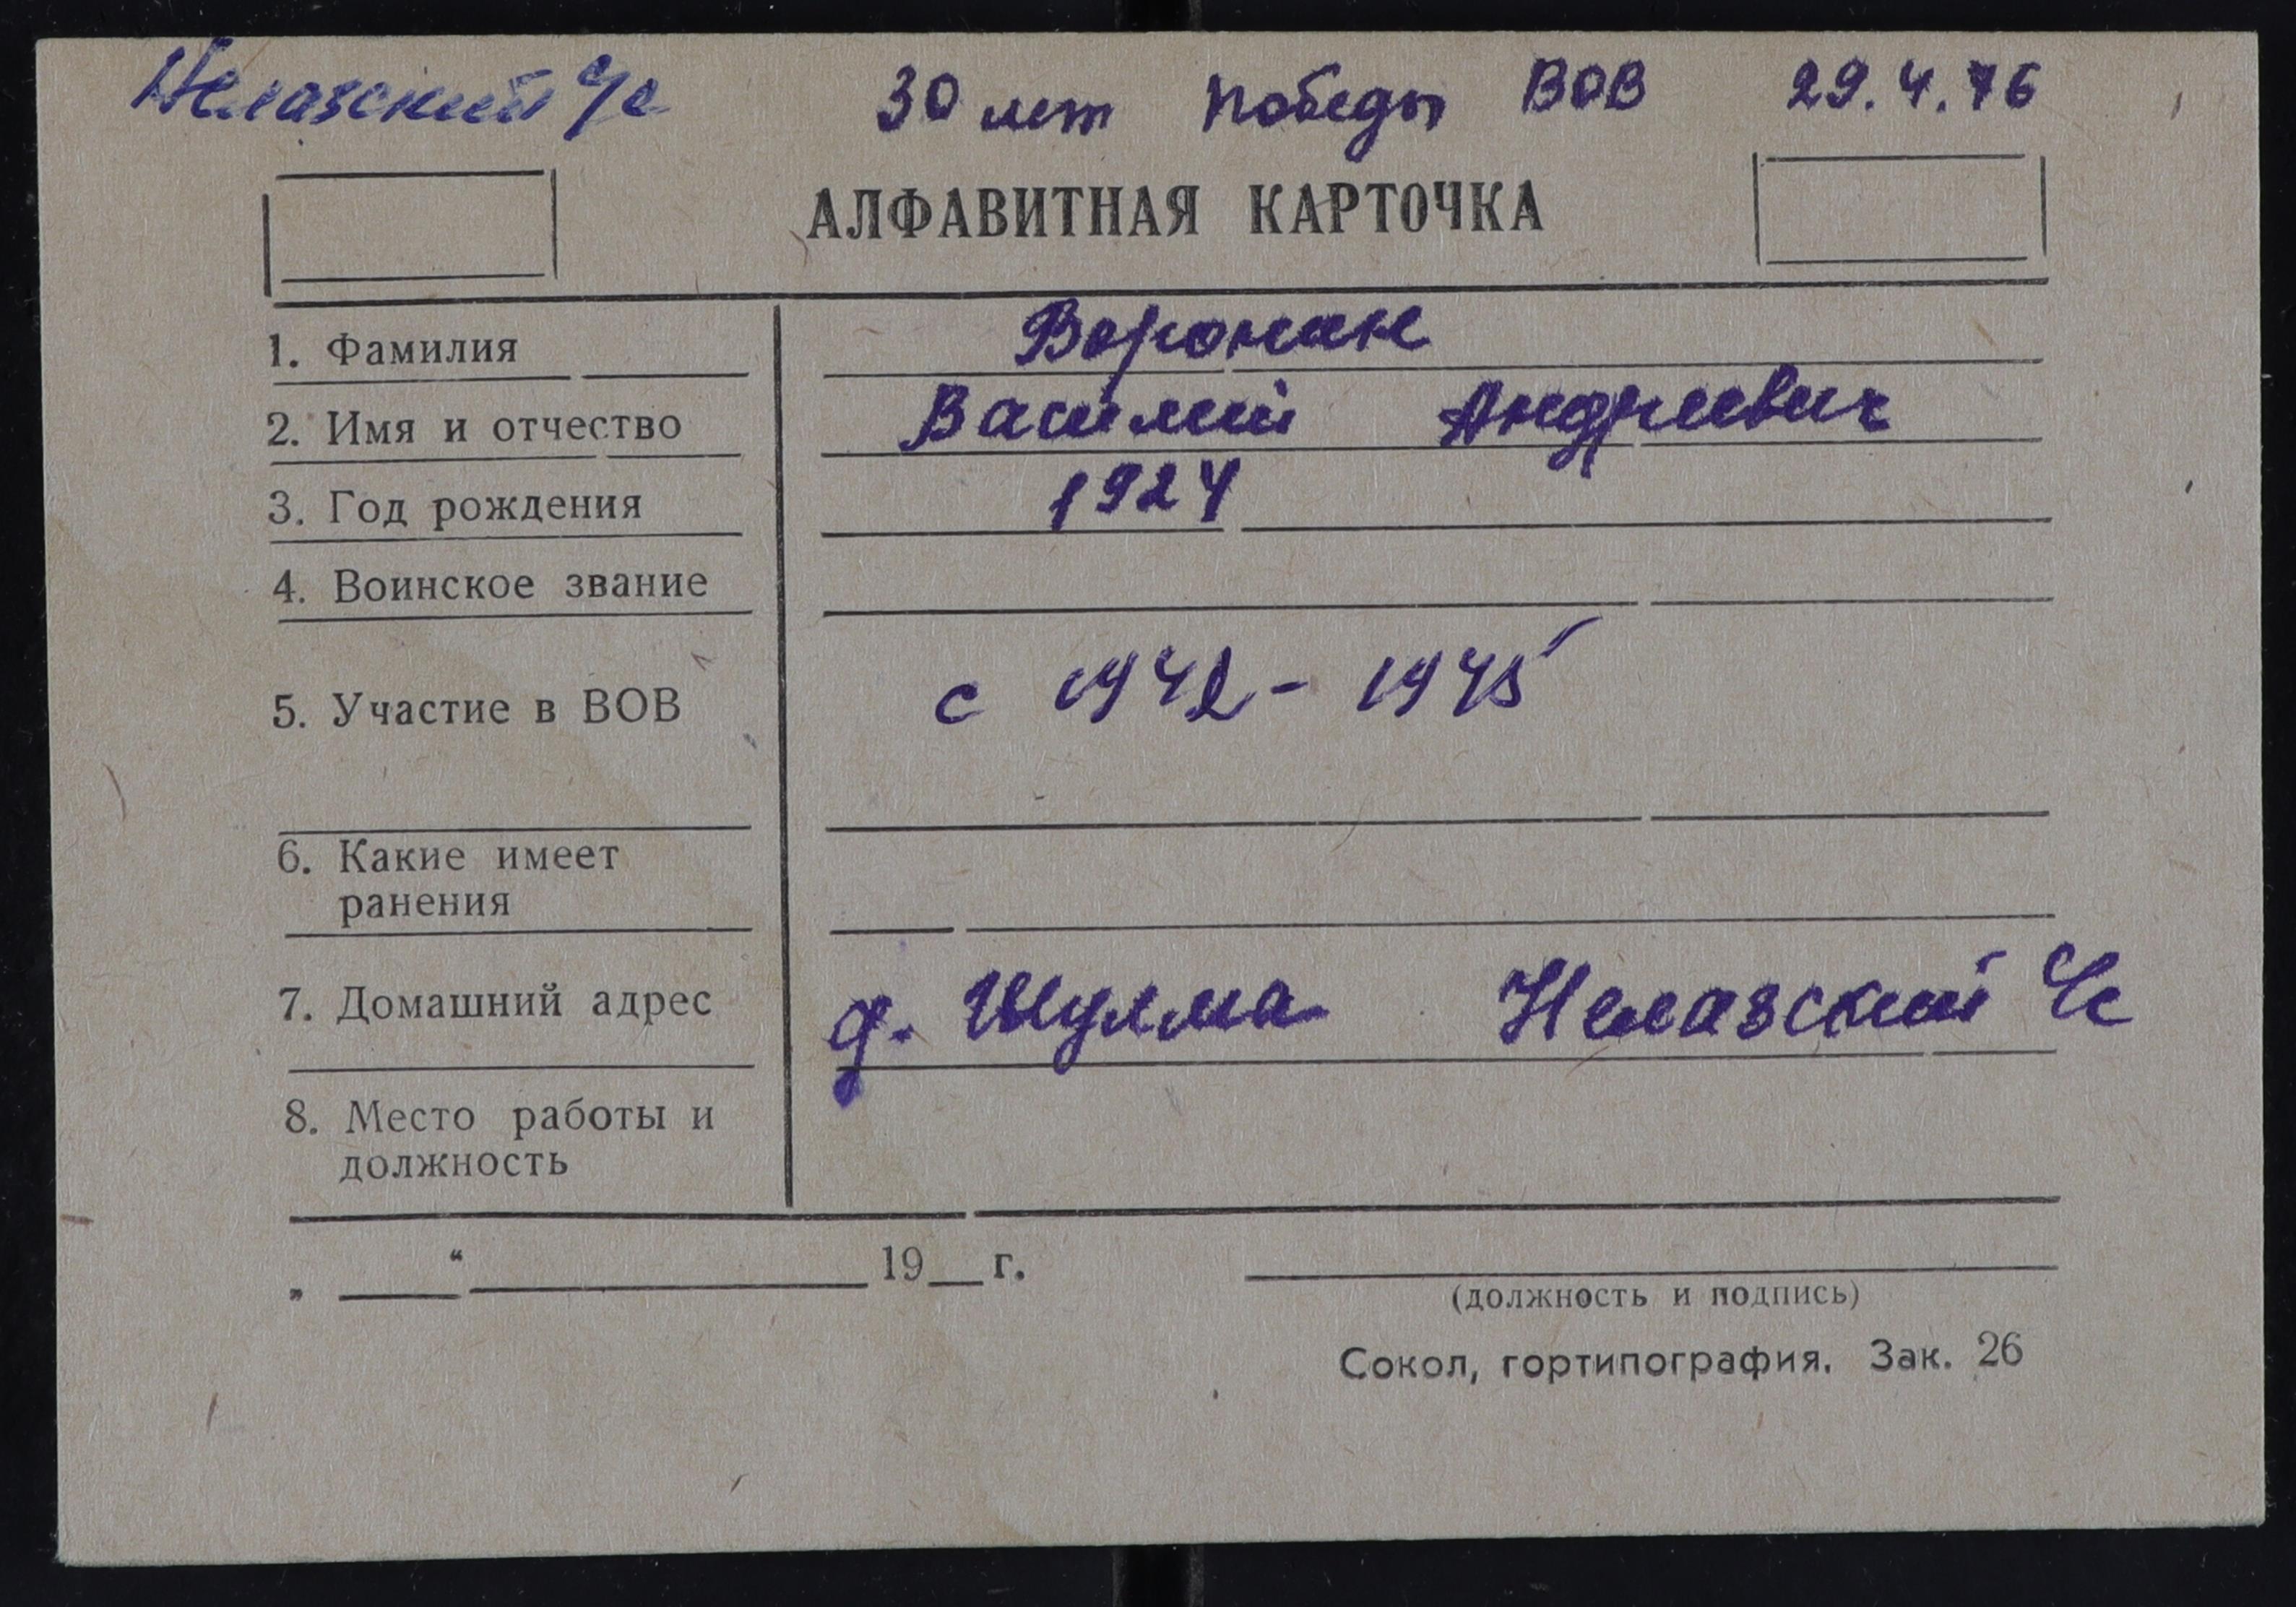 Нелазский ч/с 30 лет Победы ВОВ 29.4.76
АЛФАВИТНАЯ КАРТОЧКА
1. Фамилия Воронин
2. Имя и отчество Василий Андреевич
3. Год рождения 1924
4. Воинское звание
5. Участие в ВОВ с 1942 - 1945
6. Какие имеет
ранения
7. Домашний адрес д. Шулма Нелазский ч/с
8. Место работы и
должность
„ ___ “ ___ 19__ г.
(должность и подпись)
Сокол, гортипография. Зак. 26